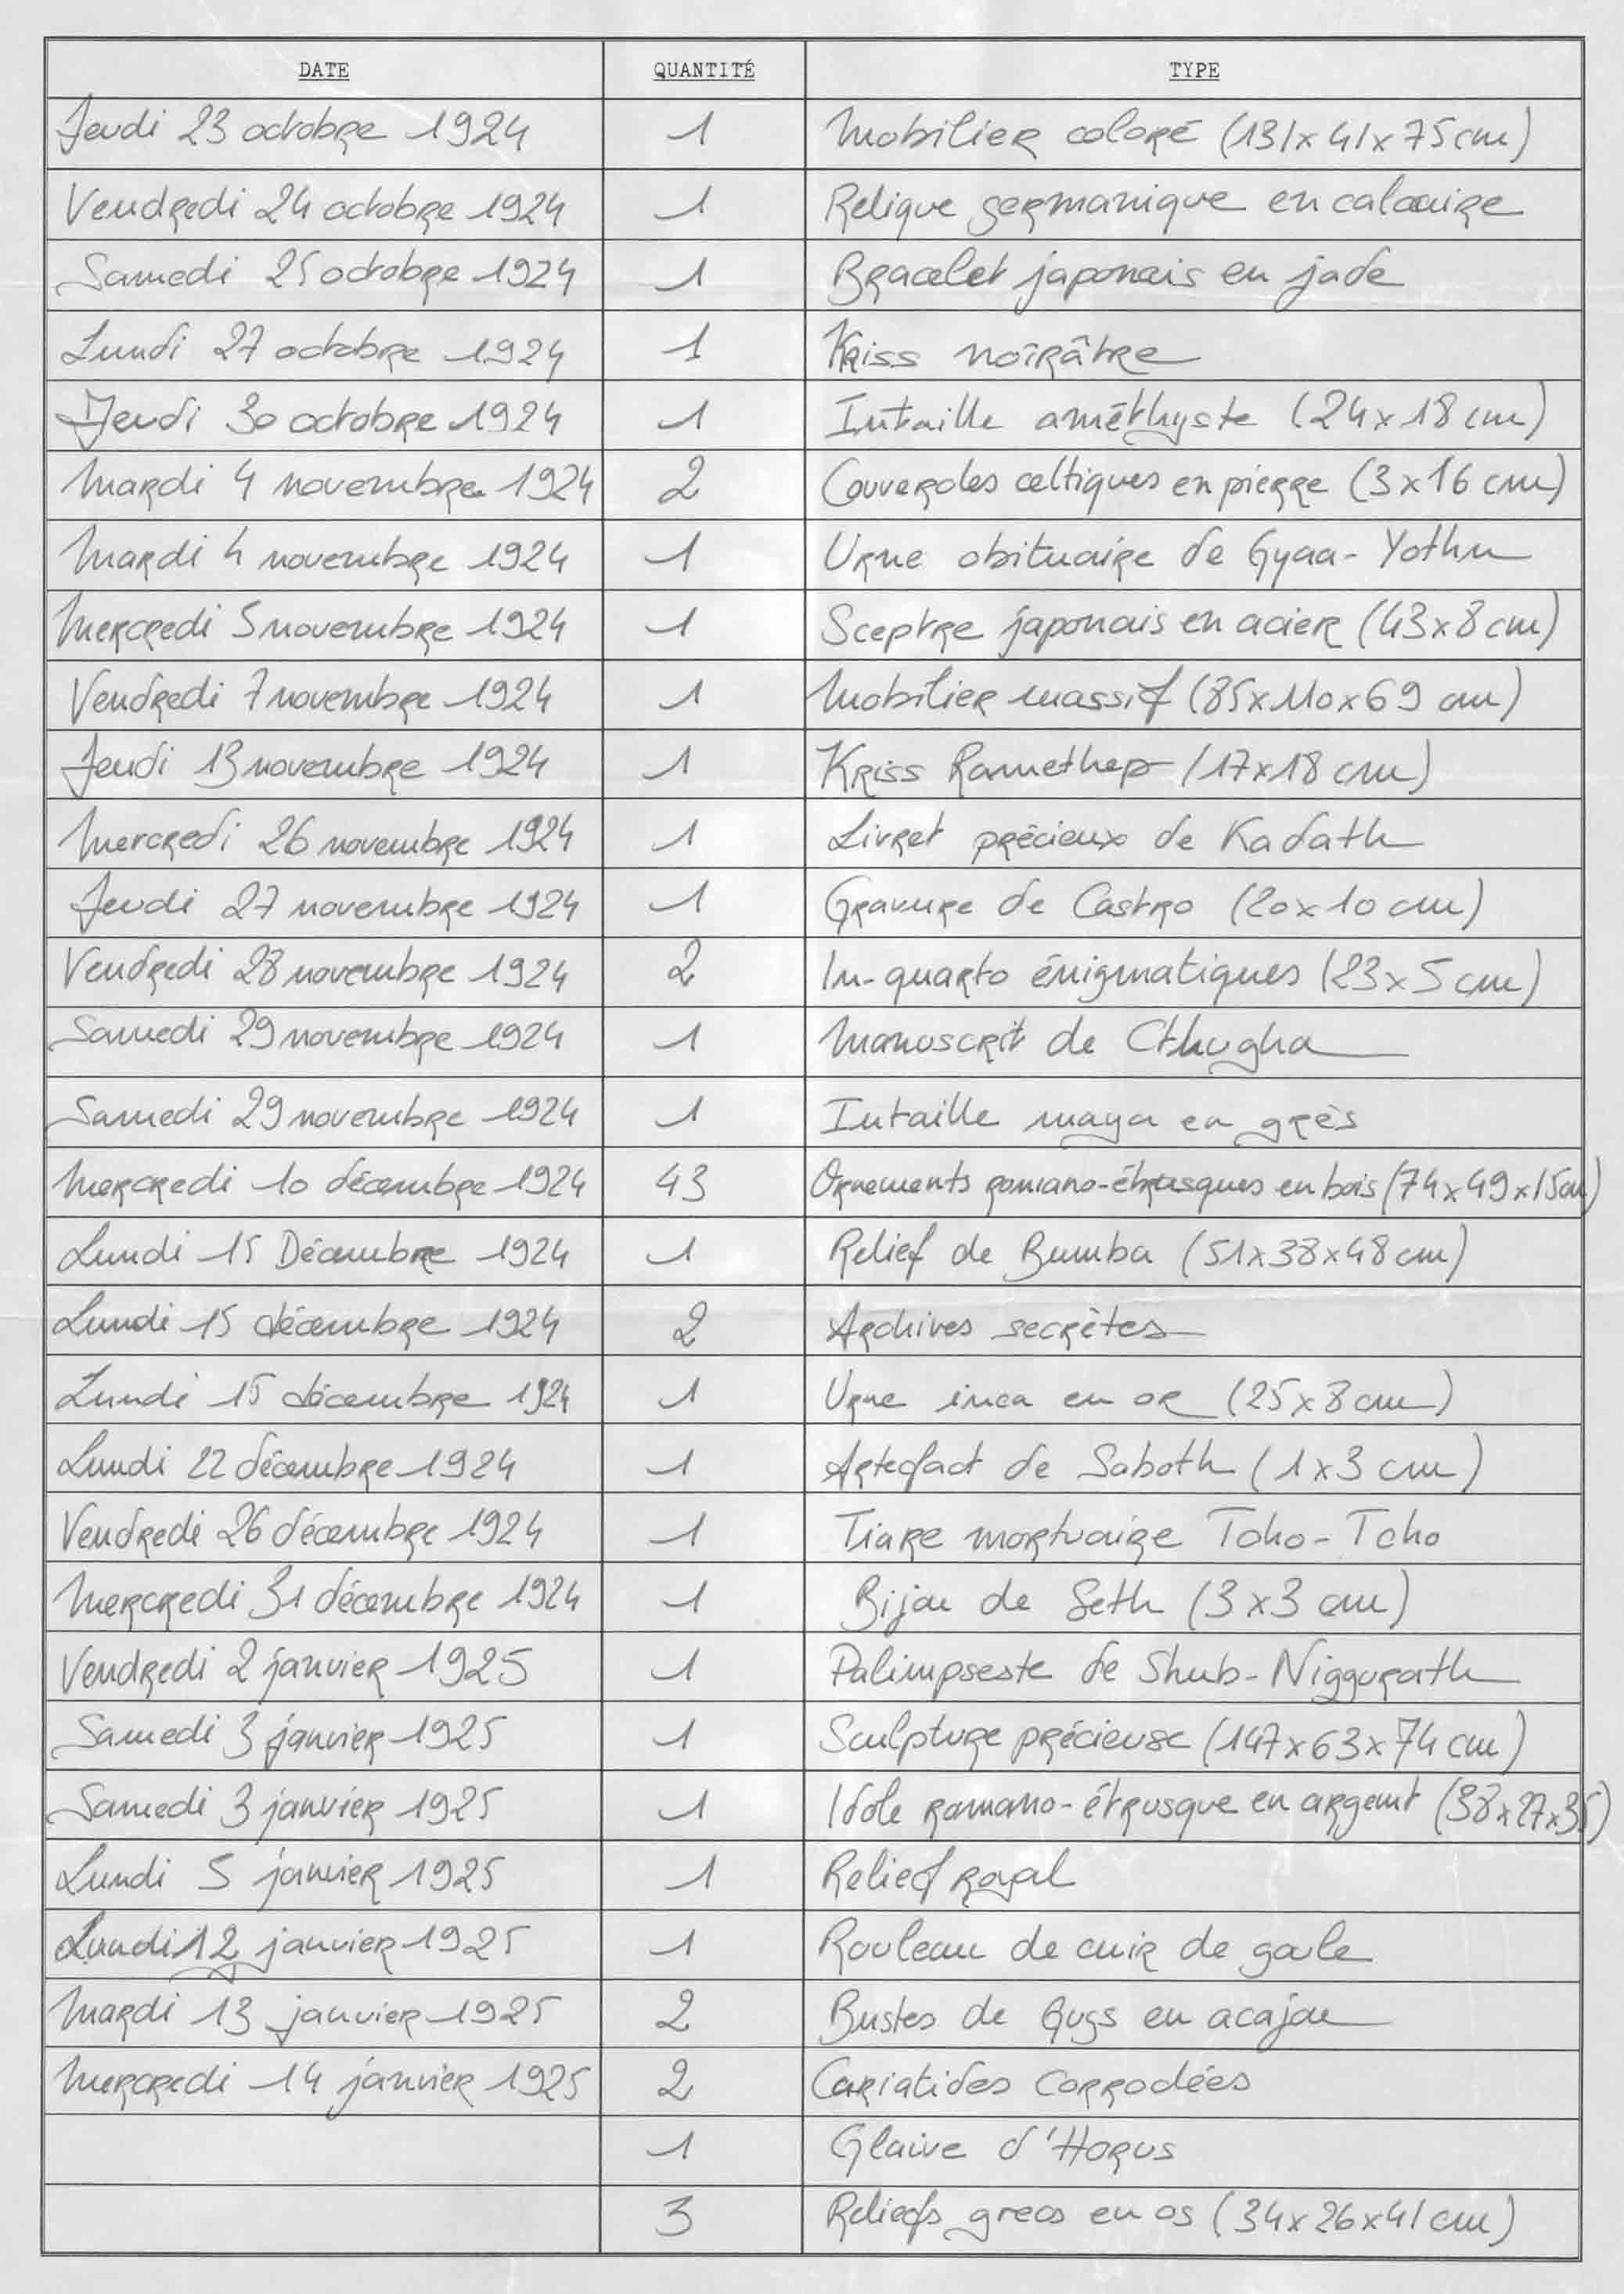 DATE QUANTITÉ TYPE
Jeudi 23 octobre 1924 1 Mobilier coloré (131x41x75cm)
Vendredi 24 octobre 1924 1 Relique germanique en calcaire
Samedi 25 octobre 1924 1 Bracelet japonais en jade
Lundi 27 octobre 1924 1 Kriss noirâtre
Jeudi 30 octobre 1924 1 Intaille améthyste (24x18 cm)
Mardi 4 novembre 1924 2 Couvercles celtiques en pierre (3x16 cm)
Mardi 4 novembre 1924 1 Urne obituaire de Gyaa-Yothn
Mercredi 5 novembre 1924 1 Sceptre japonais en acier (43x8 cm)
Vendredi 7 novembre 1924 1 Mobilier massif (85x110x69 cm)
Jeudi 13 novembre 1924 1 Kriss Ramethep (17x18 cm)
Mercredi 26 novembre 1924 1 Livret précieux de Kadath
Jeudi 27 novembre 1924 1 Gravure de Castro (20x10 cm)
Vendredi 28 novembre 1924 2 In-quarto énigmatiques (23x5 cm)
Samedi 29 novembre 1924 1 Manuscrit de Cthugha
Samedi 29 novembre 1924 1 Intaille maya en grès
Mercredi 10 décembre 1924 43 Ornements romano-étrusques en bois (74x49x15cm)
Lundi 15 Décembre 1924 1 Relief de Bumba (51x38x48 cm)
Lundi 15 décembre 1924 2 Archives secrètes
Lundi 15 décembre 1924 1 Urne inca en or (25x8 cm)
Lundi 22 décembre 1924 1 Artefact de Saboth (1x3 cm)
Vendredi 26 décembre 1924 1 Tiare mortuaire Tcho-Tcho
Mercredi 31 décembre 1924 1 Bijou de Seth (3x3 cm)
Vendredi 2 janvier 1925 1 Palimpseste de Shub-Niggurath
Samedi 3 janvier 1925 1 Sculpture précieuse (147x63x74 cm)
Samedi 3 janvier 1925 1 Idole romano-étrusque en argent (38x27x35)
Lundi 5 janvier 1925 1 Relief royal
Lundi 12 janvier 1925 1 Rouleau de cuir de goule
Mardi 13 janvier 1925 2 Bustes de Gugs en acajou
Mercredi 14 janvier 1925 2 Cariatides corrodées
1 Glaive d'Horus
3 Reliefs grecs en os (34x26x41 cm)